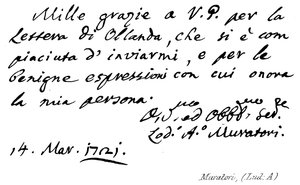 Mille grazie a V. P. per la
Lettera di Ollanda, che si è com
piaciuta d'inviarmi, e per le
benigne espressioni con cui onora
la mia persona.
Div.mo ed Obb.mo Se.
Lod.º A.º Muratori.
14. Mar. 1721.
Muratori, (Lud. A)